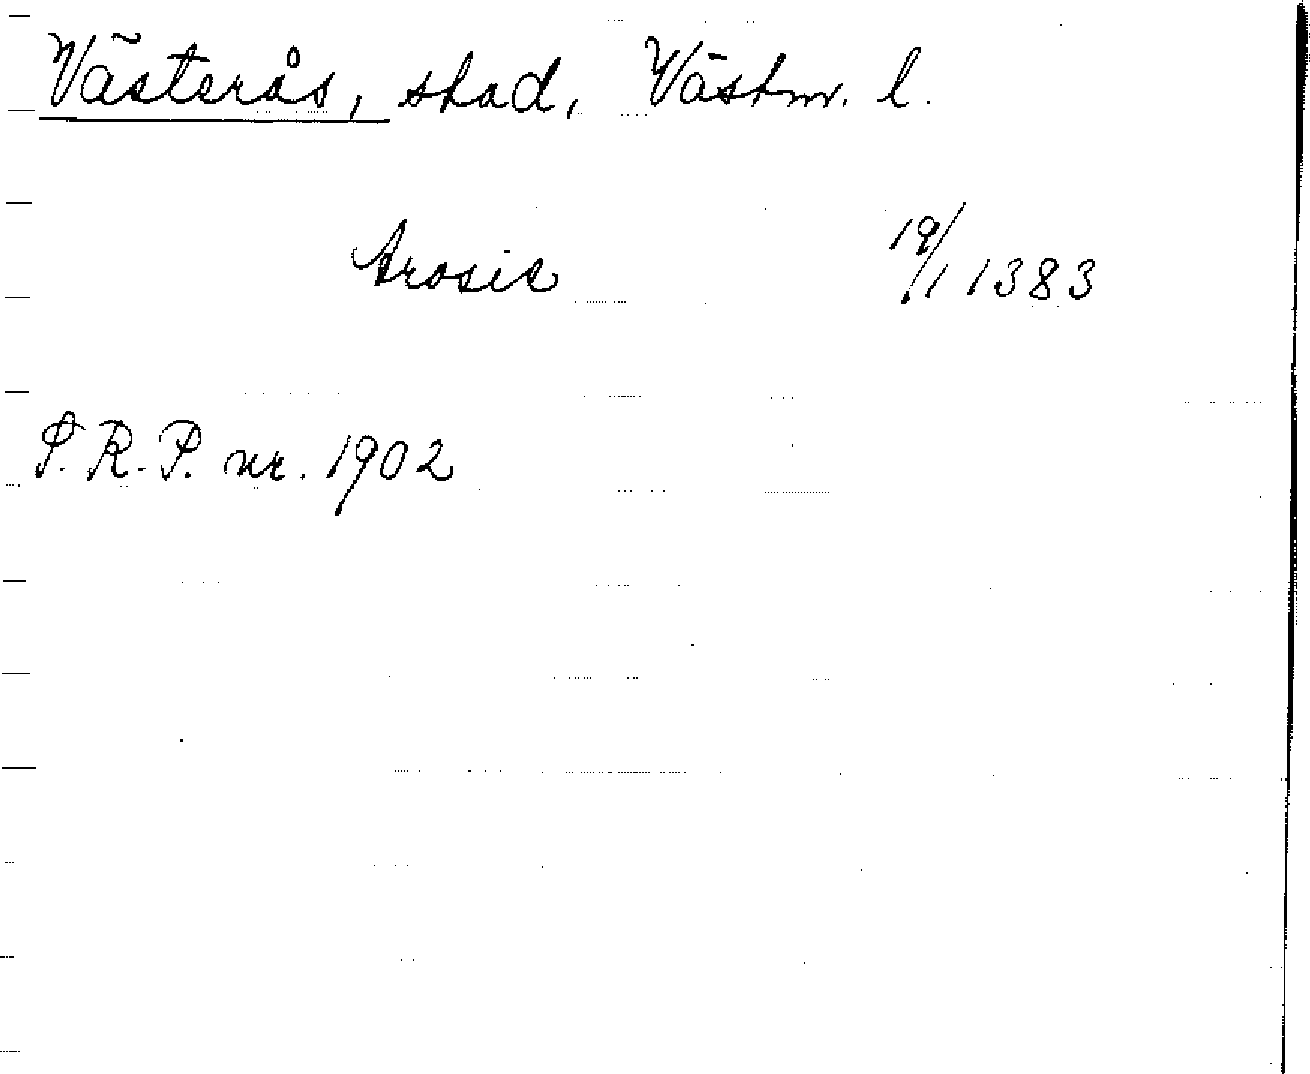 Västerås, stad, Västm. l.
Arosie 19/1 1383
S.R.P. nr. 1902